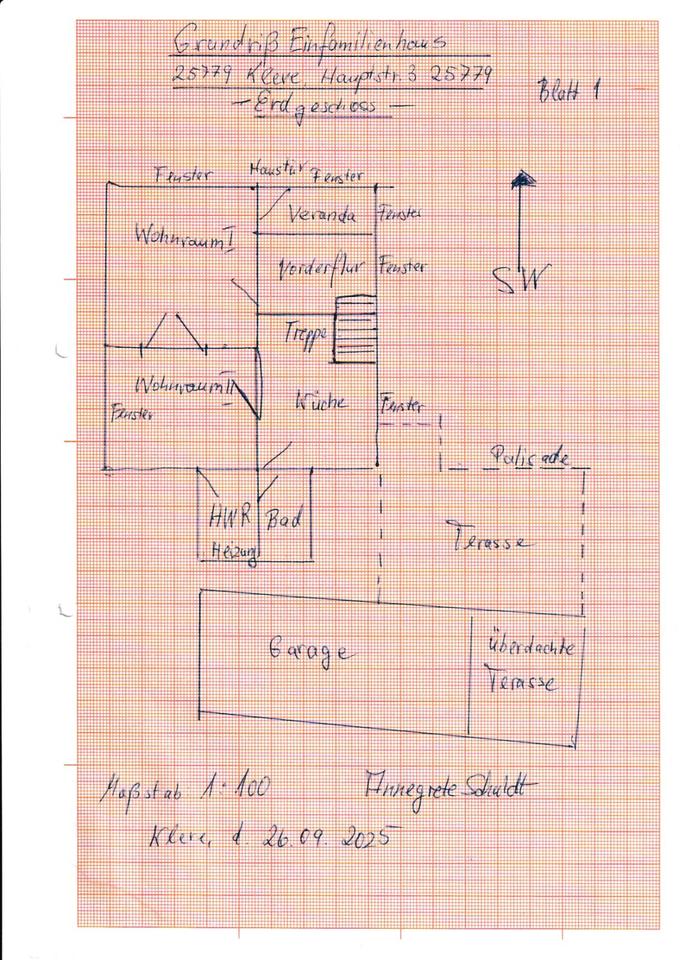 Grundriß Einfamilienhaus
25779 Kleve, Hauptstr. 3 25779
- Erdgeschoss -
Blatt 1
Fenster
Haustür
Fenster
Veranda
Fenster
Wohnraum I
Vorderflur
Fenster
SW
Treppe
Wohnraum II
Fenster
Küche
Fenster
Palisade
HWR
Bad
Heizung
Terasse
Garage
Überdachte
Terasse
Maßstab 1:100
Annegrete Schuldt
Kleve, d. 26.09.2025